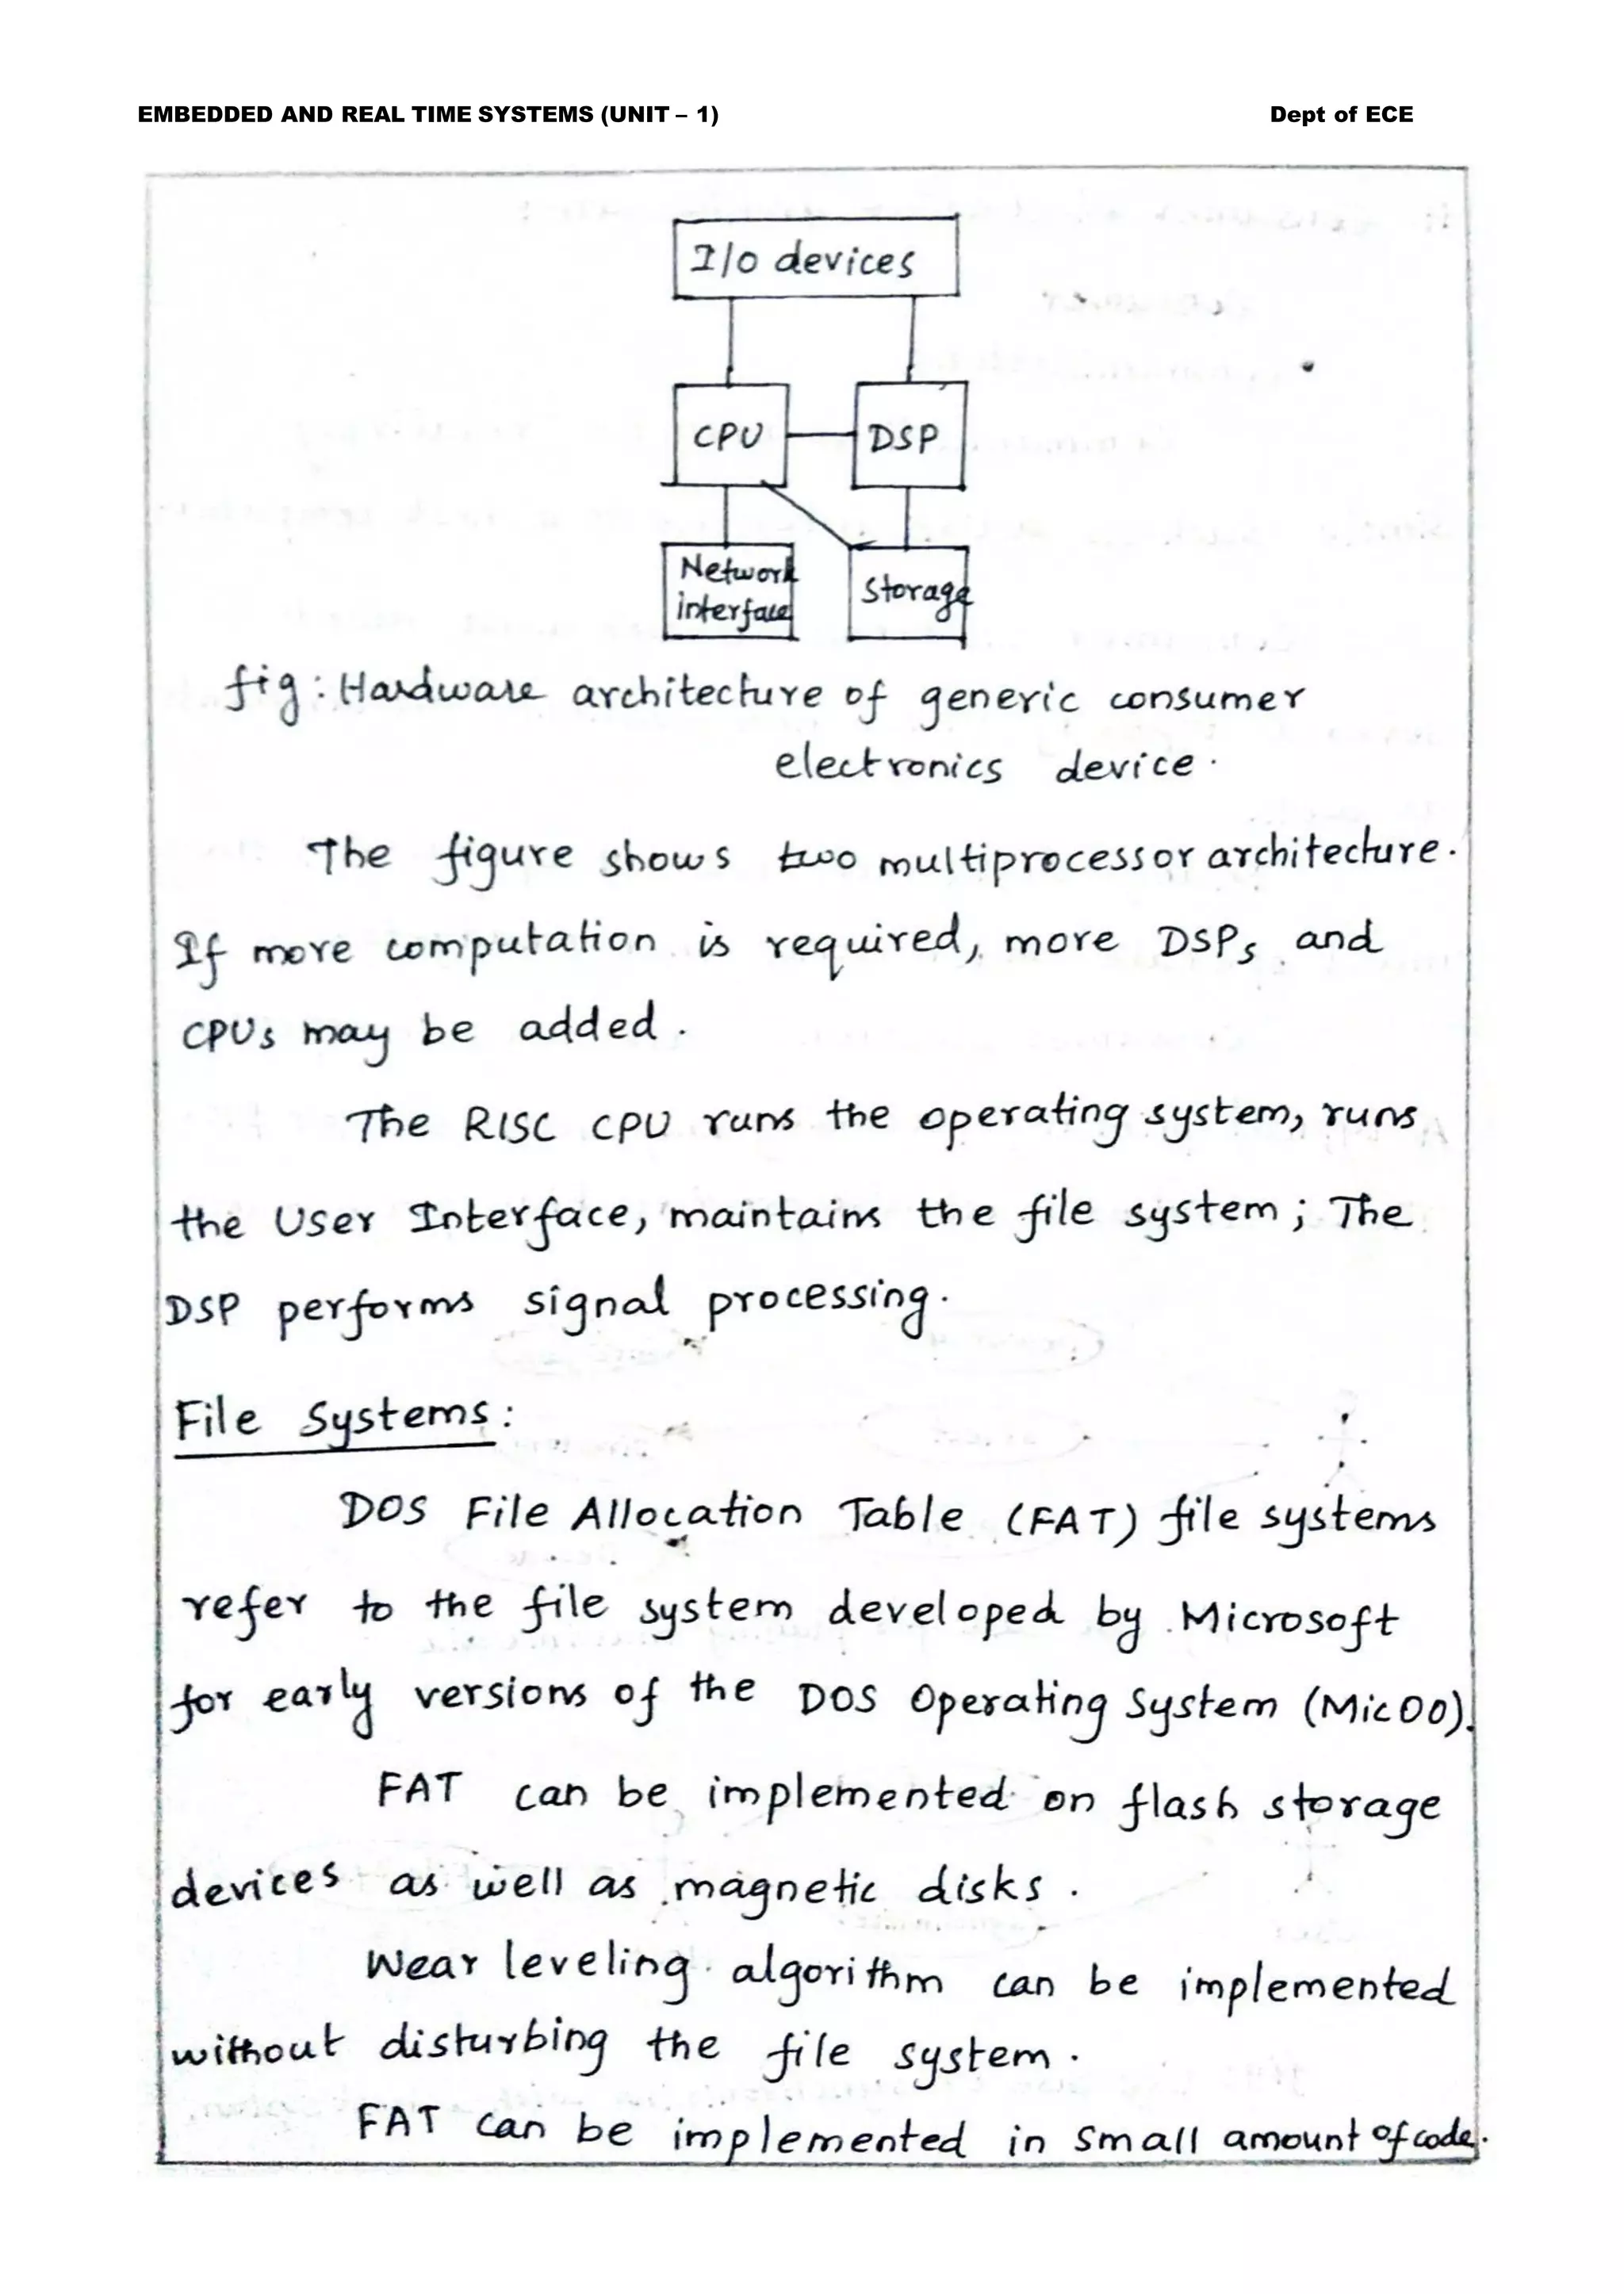 EMBEDDED AND REAL TIME SYSTEMS (UNIT – 1) Dept of ECE
I/o devices
CPU DSP
Network
interface
Storage
fig: Hardware architecture of generic consumer
electronics device.
The figure shows two multiprocessor architecture.
If more computation is required, more DSPs and
CPUs may be added.
The RISC CPU runs the operating system, runs
the User Interface, maintains the file system; The
DSP performs signal processing.
File Systems:
DOS File Allocation Table (FAT) file systems
refer to the file system developed by Microsoft
for early versions of the DOS Operating System (Mic00).
FAT can be implemented on flash storage
devices as well as magnetic disks.
Wear leveling algorithm can be implemented
without disturbing the file system.
FAT can be implemented in small amount of code.